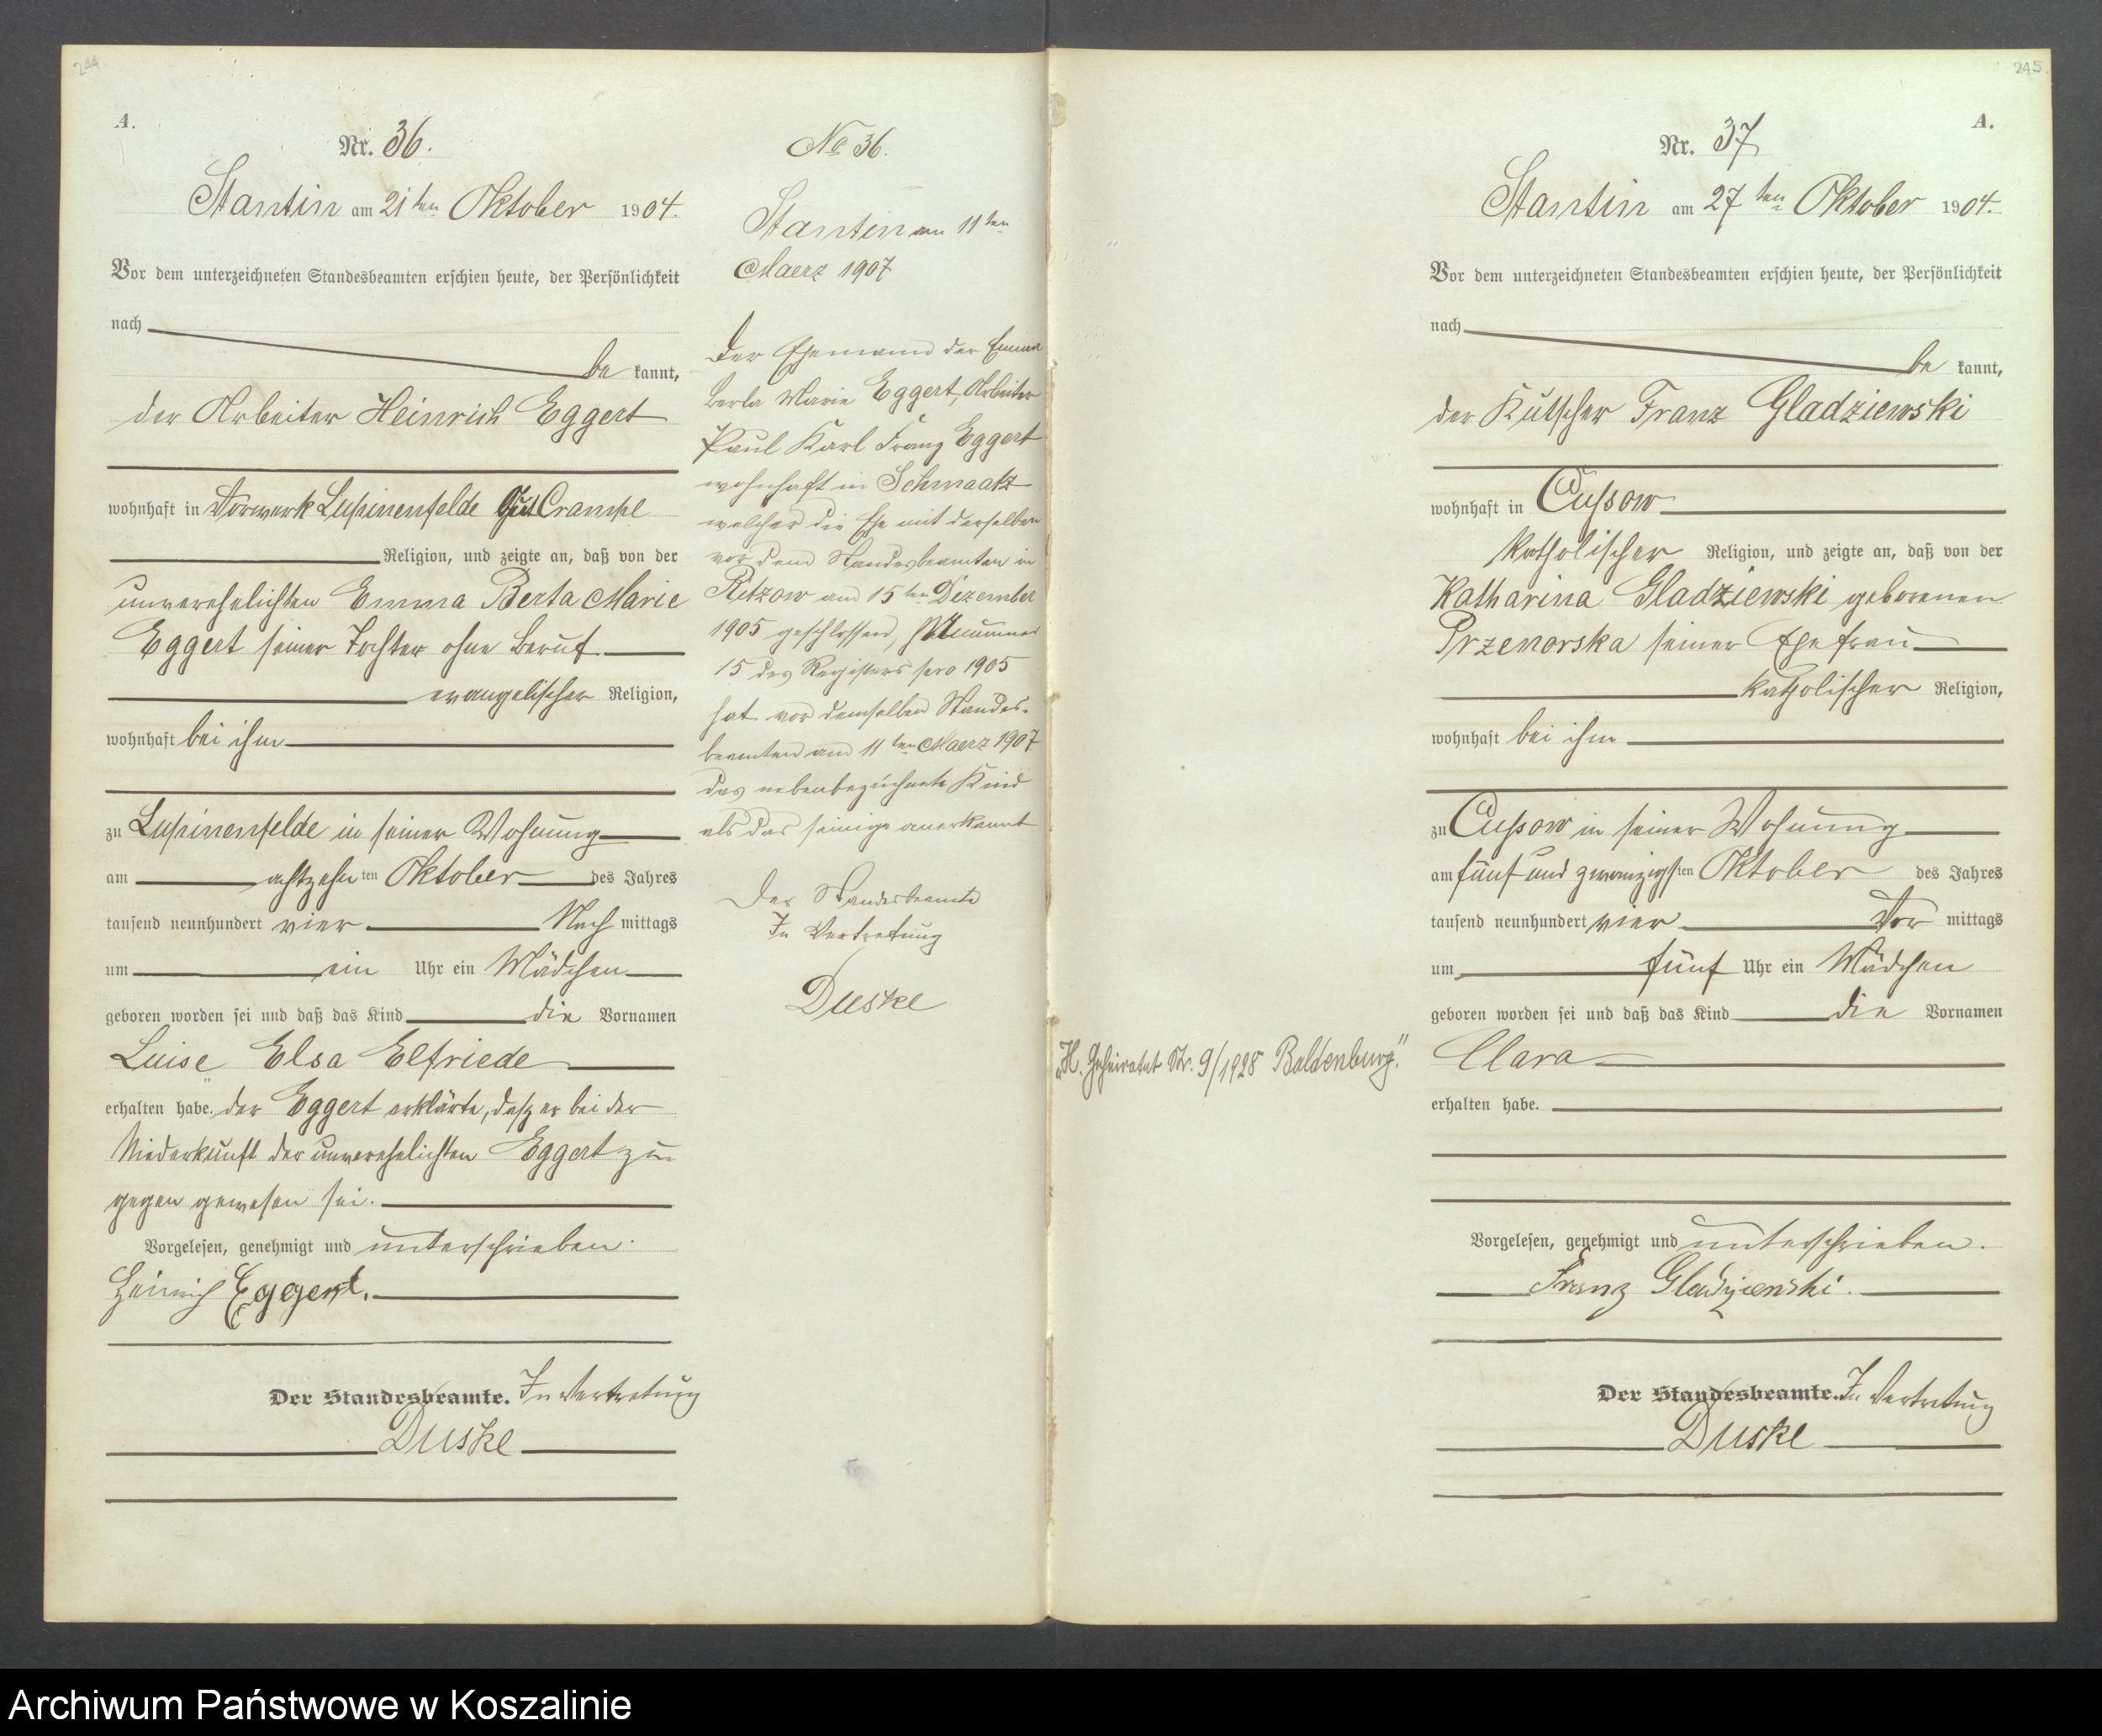 244
A.
Nr. 36.
Stantin am 21ten Oktober 1904.
Vor dem unterzeichneten Standesbeamten erschien heute, der Persönlichkeit
nach
be kannt,
der Arbeiter Heinrich Eggert
wohnhaft in Vorwerk Lupinenfelde Gut Crampe
Religion, und zeigte an, daß von der
unverehelichten Emma Berta Marie
Eggert seiner Tochter ohne Beruf
evangelischer Religion,
wohnhaft bei ihm
zu Lupinenfelde in seiner Wohnung
am achtzehn ten Oktober des Jahres
tausend neunhundert vier Nach mittags
um ein Uhr ein Mädchen
geboren worden sei und daß das Kind die Vornamen
Luise Elsa Elfriede
erhalten habe. Der Eggert erklärte, daß er bei der
Niederkunft der unverehelichten Eggert zu-
gegen gewesen sei.
Vorgelesen, genehmigt und unterschrieben.
Heinrich Eggert.
Der Standesbeamte. In Vertretung
Duske
No 36.
Stantin am 11ten
Maerz 1907
Der Ehemann der Emma
Berta Marie Eggert, Arbeiter
Paul Karl Franz Eggert
wohnhaft in Schmaatz
welcher die Ehe mit derselben
vor dem Standesbeamten in
Ritzow am 15ten Dezember
1905 geschlossen, Nummer
15 des Registers pro 1905
hat vor demselben Standes-
beamten am 11ten Maerz 1907
das nebenbezeichnete Kind
als das seinige anerkannt
Der Standesbeamte
In Vertretung
Duske
245.
A.
Nr. 37
Stantin am 27ten Oktober 1904.
Vor dem unterzeichneten Standesbeamten erschien heute, der Persönlichkeit
nach
be kannt,
der Kutscher Franz Gladziewski
wohnhaft in Cussow
katholischer Religion, und zeigte an, daß von der
Katharina Gladziewski geborenen
Przeworska seiner Ehefrau
katholischer Religion,
wohnhaft bei ihm
zu Cussow in seiner Wohnung
am fünf und zwanzigsten Oktober des Jahres
tausend neunhundert vier Vor mittags
um fünf Uhr ein Mädchen
geboren worden sei und daß das Kind die Vornamen
„H. Geheiratet Nr. 9/1928 Baldenburg."
Clara
erhalten habe.
Vorgelesen, genehmigt und unterschrieben.
Franz Gladziewski.
Der Standesbeamte. In Vertretung
Duske
Archiwum Państwowe w Koszalinie